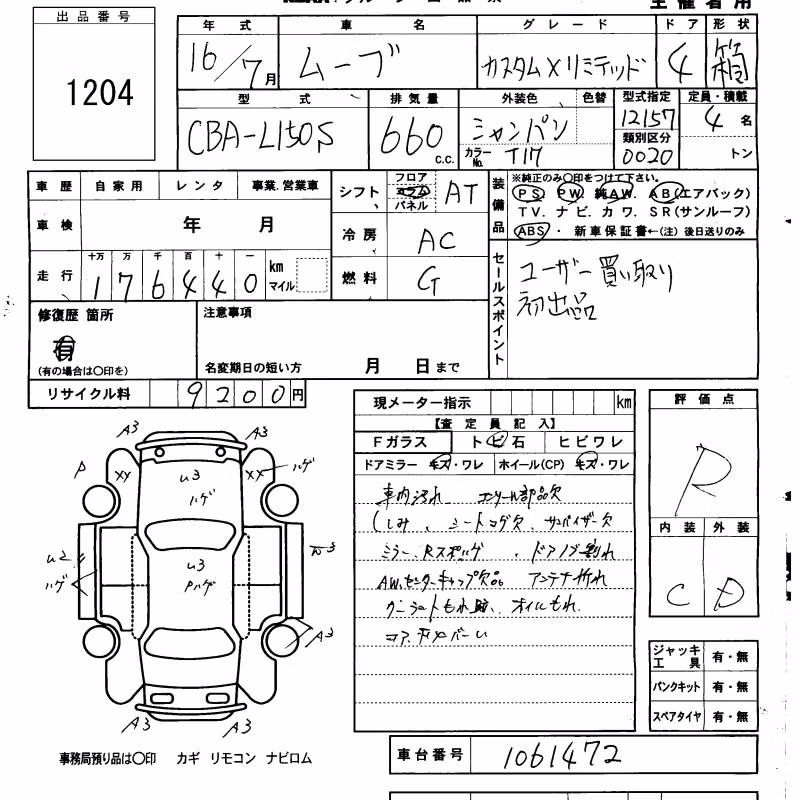 主催者用
出品番号
1204
年式 車名 グレード ドア 形状
16/7月 ムーブ カスタムXリミテッド 4 箱
型式 排気量 外装色 色替 型式指定 定員・積載
CBA-L150S 660 c.c. シャンパン 12157 4名
カラーNo. T17 類別区分 0020 トン
車歴 自家用 レンタ 事業.営業車
車検 年 月
走行 十万 万 千 百 十 一
176440 km マイル
シフト フロア コラム パネル AT
冷房 AC
燃料 G
装備品 ※純正のみ○印をつけて下さい。
PS. PW. 純AW. AB(エアバック)
TV. ナビ. カワ. SR(サンルーフ)
ABS ・ 新車保証書←(注) 後日送りのみ
セールスポイント
ユーザー買い取り
初出品
修復歴 箇所
有
(有の場合は○印を)
注意事項
名変期日の短い方 月 日まで
リサイクル料 9200円
現メーター指示 km
【査定員記入】
Fガラス トビ石 ヒビワレ
ドアミラー キズ・ワレ ホイール(CP) キズ・ワレ
車内汚れ 部品欠
しみ、シート欠 サンバイザー欠
ミラー、 ドアノブ割れ
AW.センターキャップ欠品 アンテナ折れ
オイルもれ
評価点
R
内装 外装
C D
ジャッキ工具 有・無
パンクキット 有・無
スペアタイヤ 有・無
A3 A3
P XX XX ハゲ
U3
ハゲ
U2
ハゲ
U3
Pハゲ
A3
A3 A3
事務局預り品は○印 カギ リモコン ナビロム
車台番号 1061472